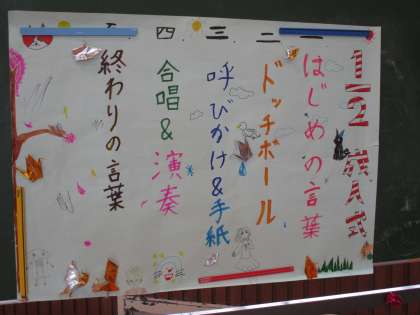 1/2成人式
一 はじめの言葉
二 ドッチボール
三 呼びかけ&手紙
四 合唱&演奏
五 終わりの言葉